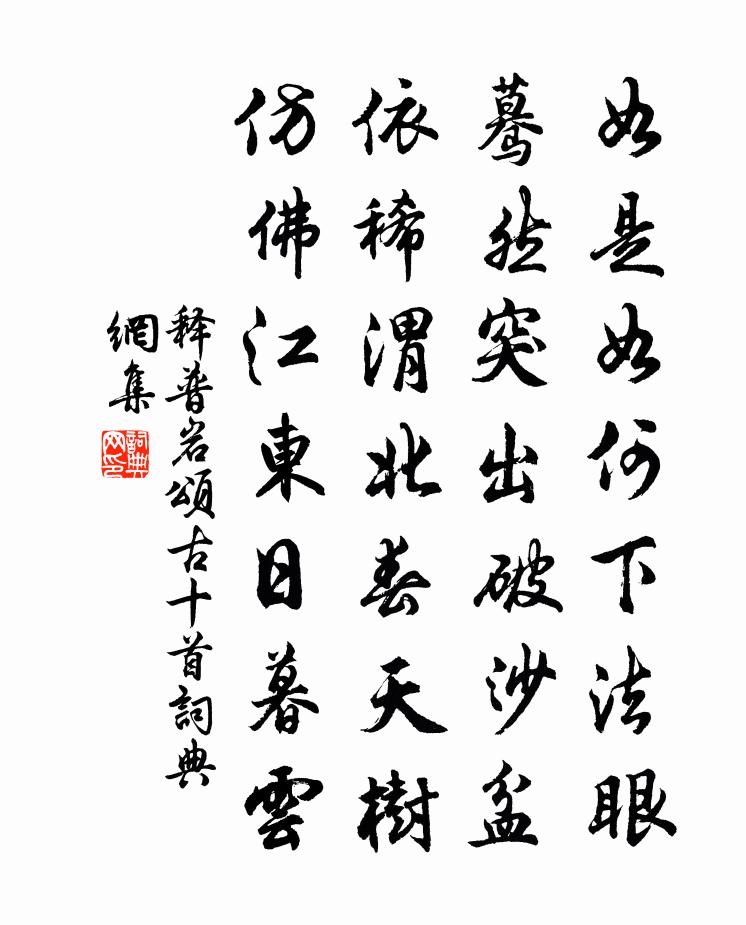 如是如何下法眼
驀然突出破沙盆
依稀渭北春天樹
仿佛江東日暮雲
释普岩頌古十首詞典
網集
詞典網印